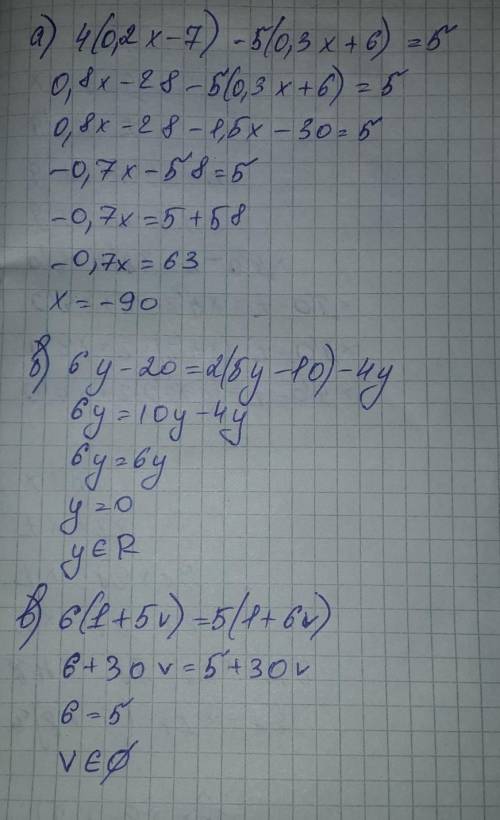 а) 4(0,2x-7) -5(0,3x+6) =5
0,8x-28-5(0,3x+6)=5
0,8x-28-1,5x-30=5
-0,7x-58=5
-0,7x=5+58
-0,7x=63
x=-90
б) 6y-20=2(5y-10)-4y
6y=10y-4y
6y=6y
y=0
y∈R
в) 6(1+5v)=5(1+6v)
6+30v=5+30v
6=5
v∈∅